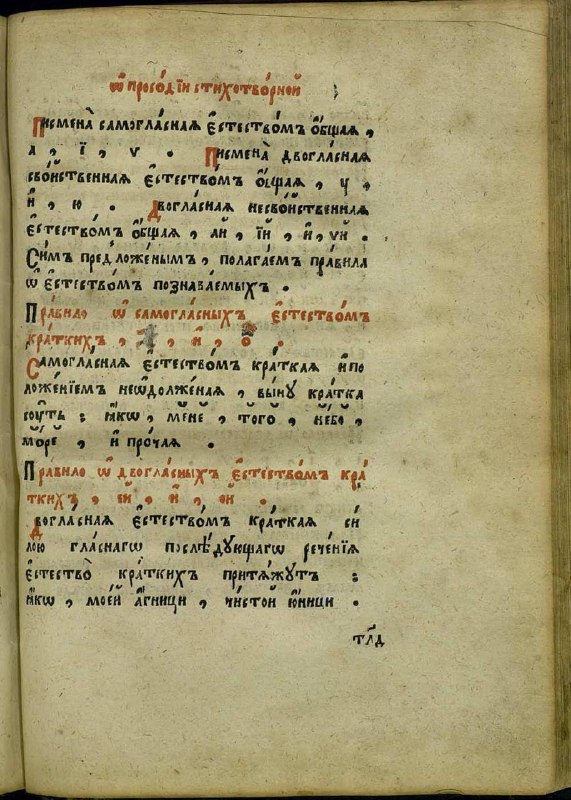 Ѿ просо́дїи стихотво́рной
Писмена̀ самогла́сная є҆стество́мъ ѻ҆́бщая ,
а , і , ѵ . Писмена̀ двогла́сная
сво́йственная є҆стество́мъ ѻ҆́бщая , ч ,
й , ю . Двогла́сная несво́йственная
є҆стество́мъ ѻ҆́бщая , ай , їй , и҆ , ѵй .
Си́мъ предложе́нымъ , полага́емъ пра́вила
ѡ҆ є҆стество́мъ познава́емыхъ .
Пра́вило ѡ҆ самогла́сныхъ є҆стество́мъ
кра́ткихъ , и҆ , о .
Самогла́сная є҆стество́мъ кра́ткая и҆ по
ложе́нїемъ неѿдолже́ная , вы́ну кра́тка
сѹ́ть : ꙗ҆́кѡ , мене , того , небо ,
море , и҆ про́чая .
Пра́вило ѡ҆ двогла́сныхъ є҆стество́мъ кра́
ткихъ , ей , и҆ , ой .
Двогла́сная є҆стество́мъ кра́ткая си́
лою гла́снагѡ послѣ́дующагѡ рече́нїѧ
є҆стество̀ кра́ткихъ притѧ́жутъ :
ꙗ҆́кѡ , мое́й а҆́гници , чи́стой ю҆́ници .
тл҃д